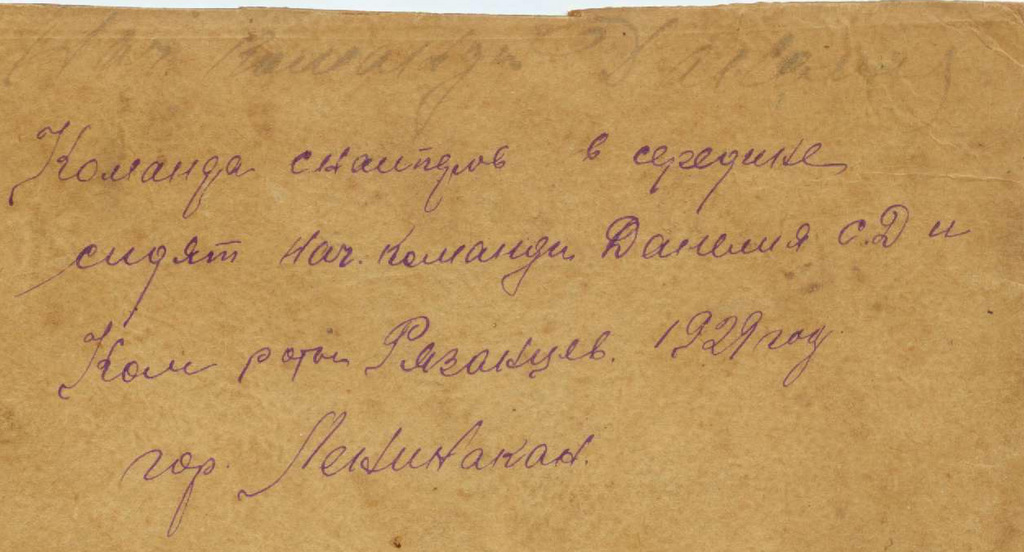 Нач команды Данелия
Команда снайперов в середине
сидят нач. команды Данелия С.Д и
Ком роты Рязанцев. 1929 год
гор. Ленинакан.